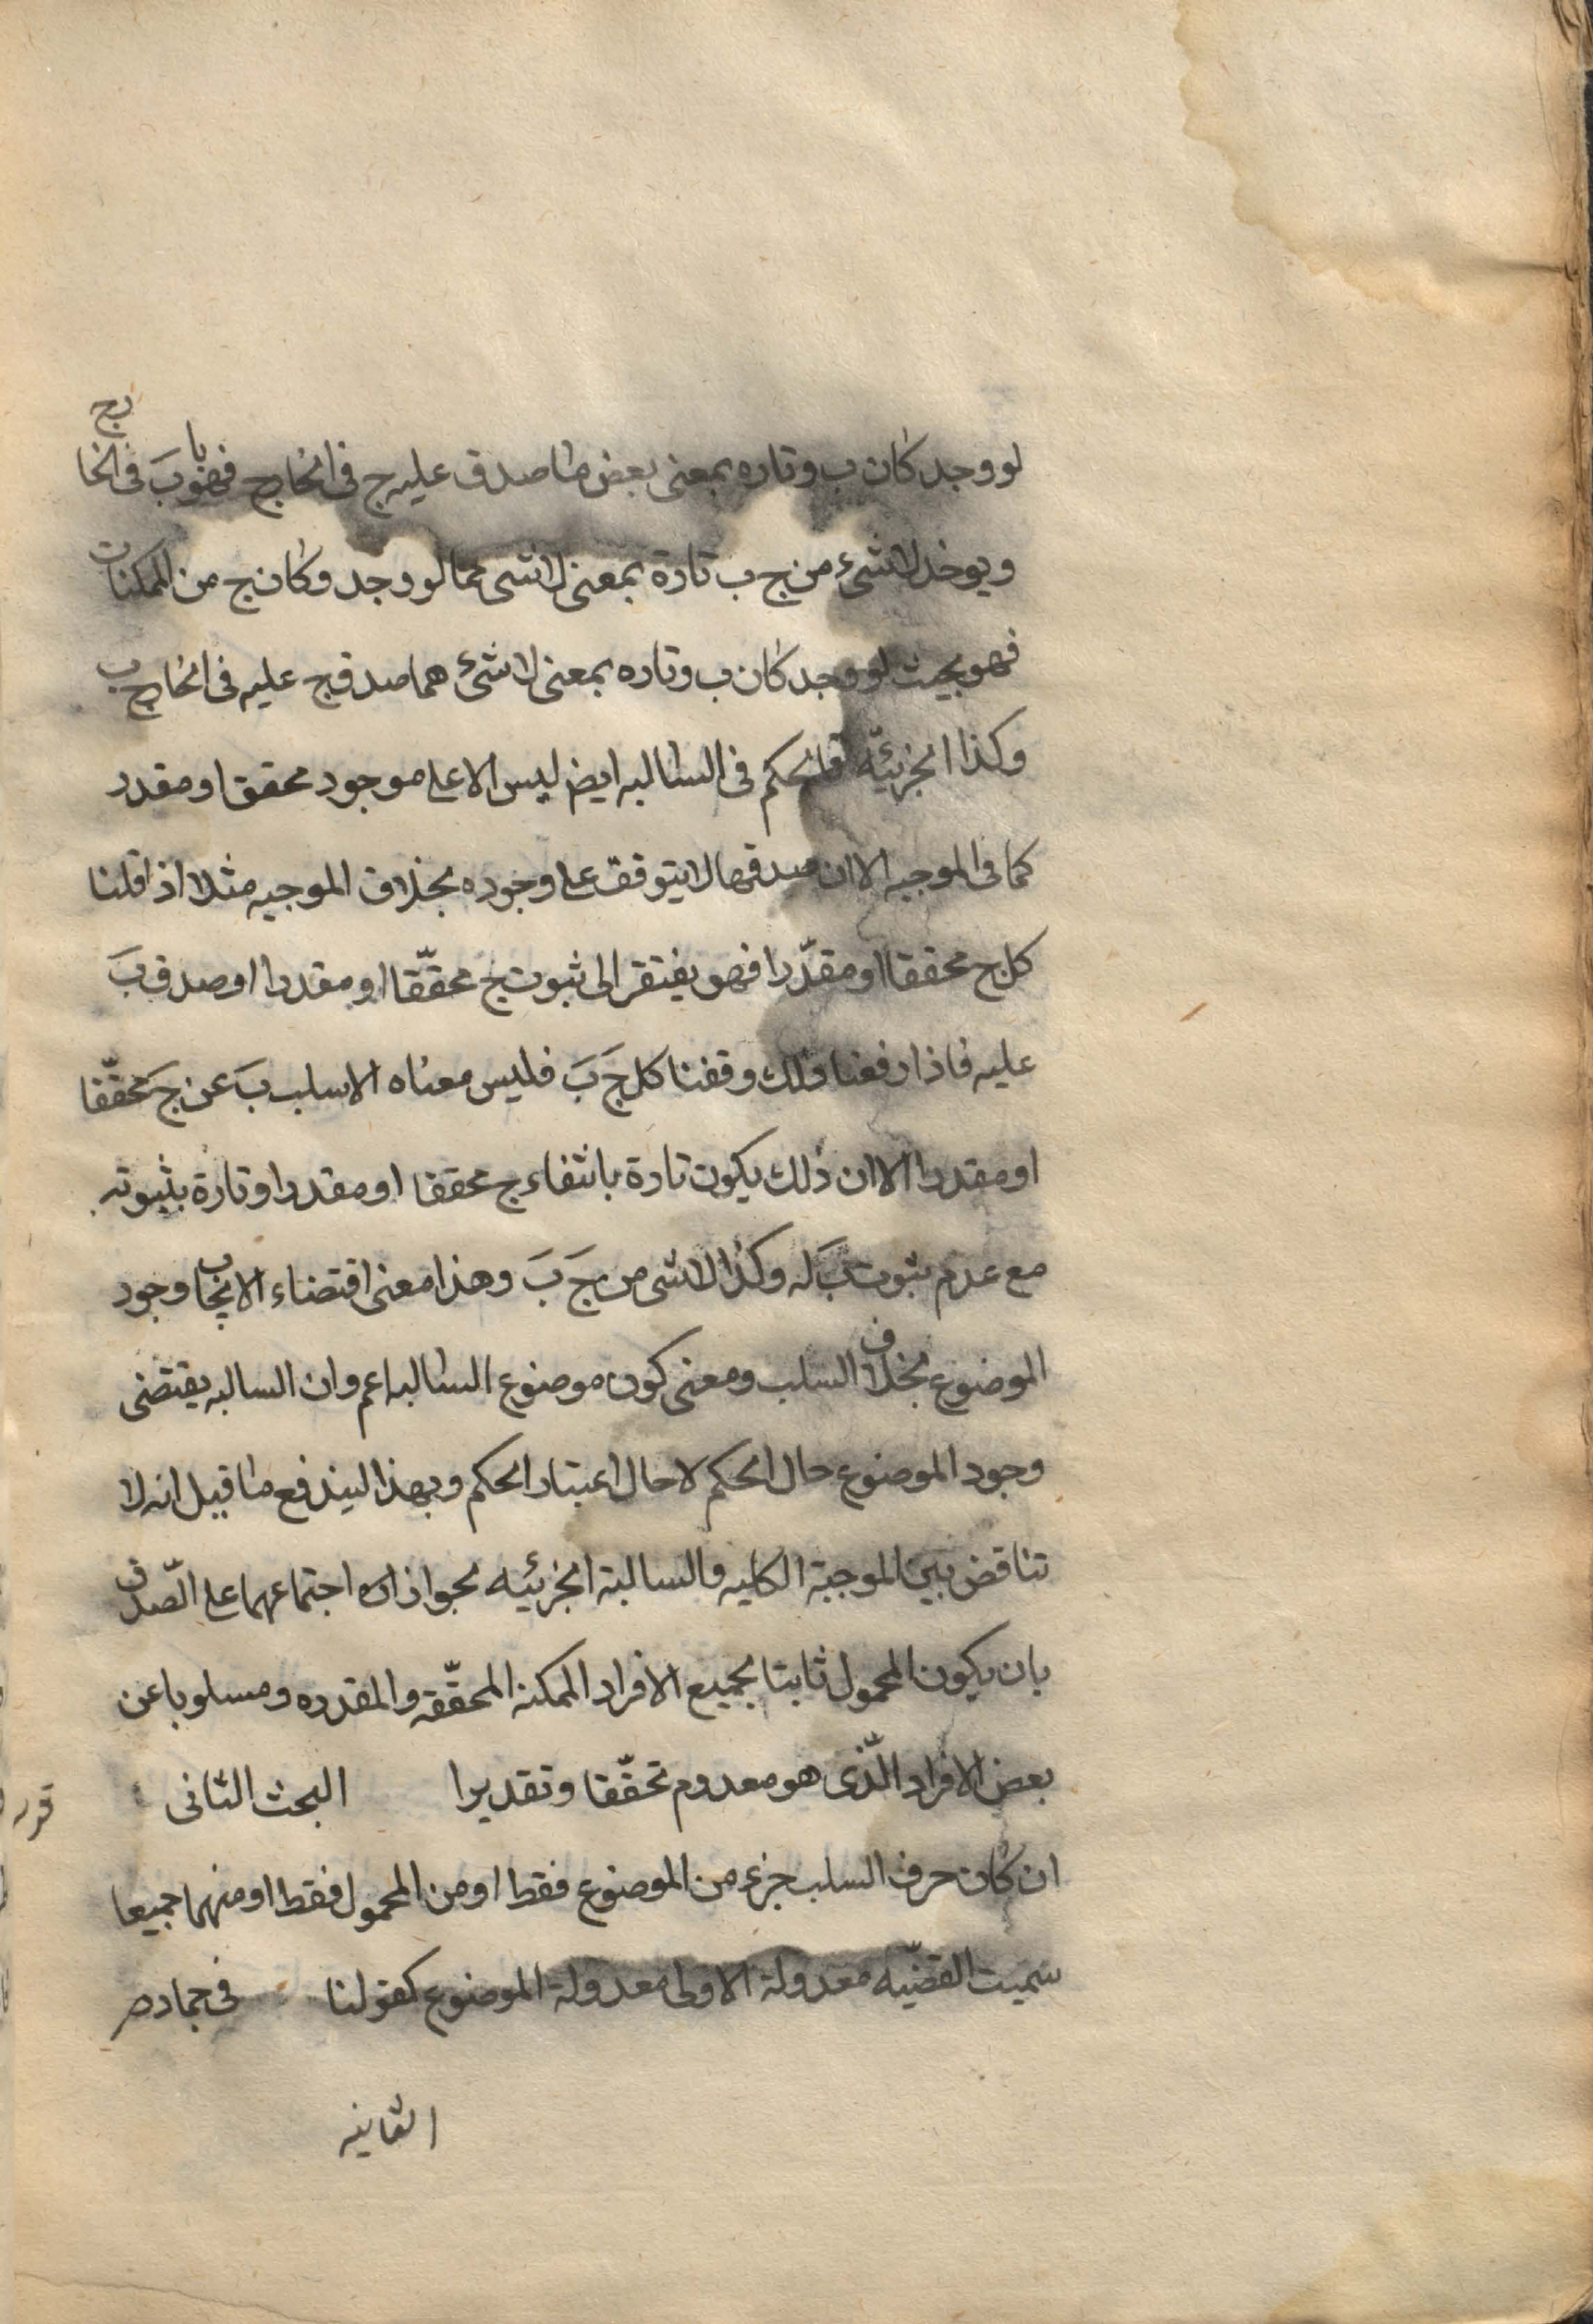 لو وجد كان ب وتاره بمعنى بعض ما صدق عليه ج فى الخارج فهو ب فى الخارج
ويوخذ لا شىء من ج ب تارة بمعنى لا شى مما لو وجد وكان ج من الممكنات
فهو بحيث لو وجد كان ب وتاره بمعنى لا شئ مما صدق ج عليه فى الخارج ب
وكذا الجزئيّه فالحكم فى السالبه ايض ليس الا على موجود محقق او مقدر
كما فى الموجبه الا ان صدقها لا يتوقف على وجوده بخلاف الموجبه مثلا اذا قلنا
كل ج محققا او مقدّرا فهو يفتقر الى ثبوت ج محقّقا او مقدرا او صدق بَ
عليه فاذا رفعنا ذلك وقفنا كل جَ بَ فليس معناه الا سلب بَ عن جَ محقّقا
او مقدرا الا ان ذلك يكون تارة بانتفاء ج محققا او مقدرا وتارة بثبوته
مع عدم ثبوت بَ له وكذا لا شى من جَ بَ وهذا معنى اقتضاء الايجاب وجود
الموضوع بخلاف السلب ومعنى كون موضوع السالبه اعم وان السالبه يقتضى
وجود الموضوع حال الحكم لا حال اعتبار الحكم وبهذا ليندفع ما قيل انه لا
تناقض بين الموجبة الكليه والسالبة الجزئيه بجواز اجتماعهما على الصّدق
بان يكون المحمول ثابتا لجميع الافراد الممكنه المحقّقه والمقدره ومسلوبا عن
بعض الافراد الّذى هو معدوم تحقّقا وتقديرا البحث الثانى
ان كان حرف السلب جزء من الموضوع فقط او من المحمول فقط او منهما جميعا
سميت القضيّه معدولة الاولى معدولة الموضوع كقولنا فى جماد
الثانيه